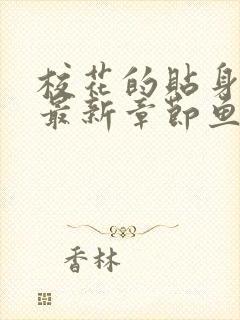 校花的贴身
最新章节鱼
香林